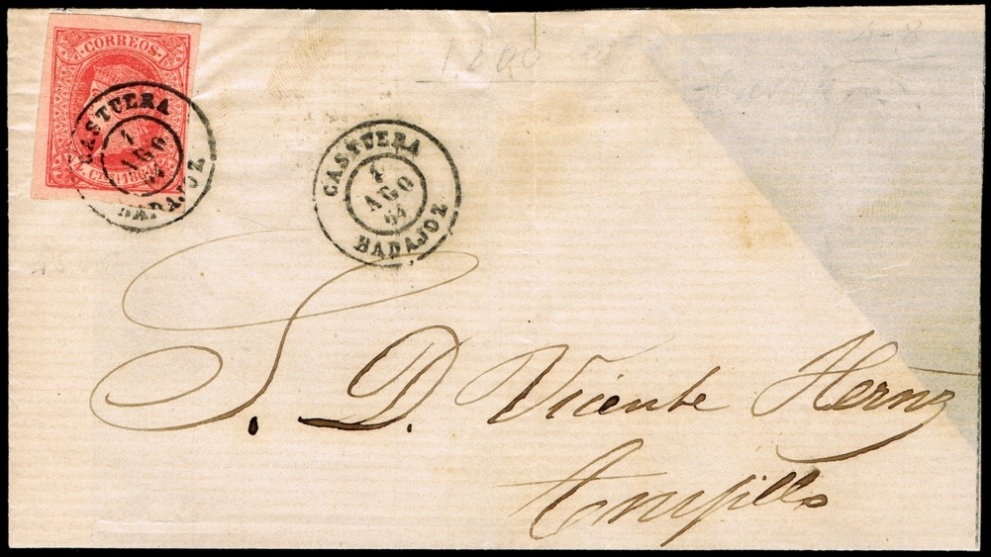 CORREOS
CASTUERA
1
AGO
64
BADAJOZ
CASTUERA
AGO
64
BADAJOZ
1200
4-8
S. D. Vicente Hernz
Trujillo